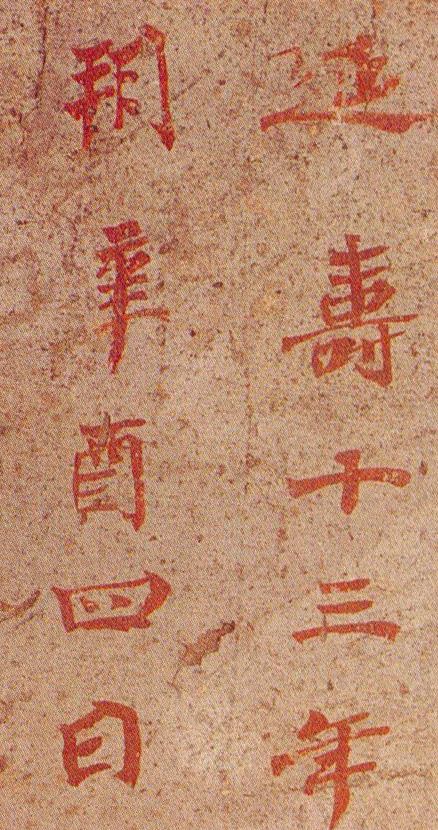 延壽十三年
朔辛酉四日